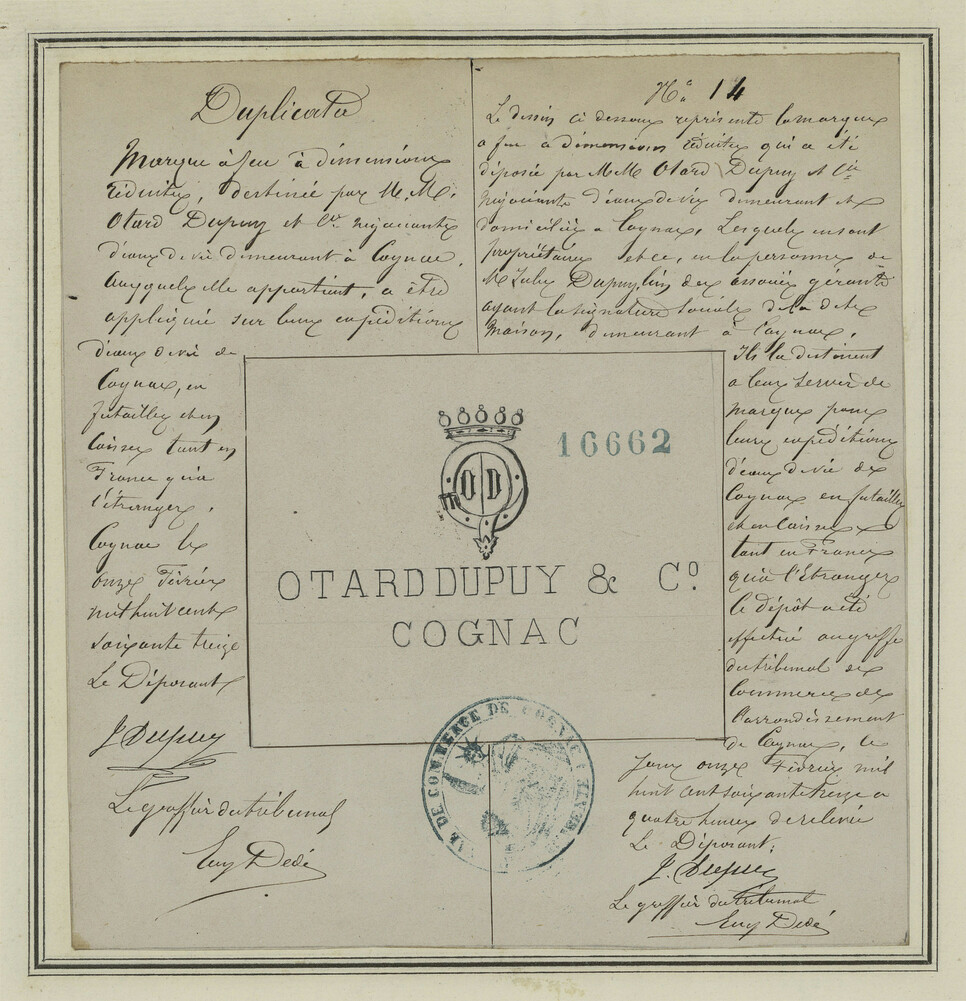 Duplicata
Marque à feu à dimensions
réduites, destinée par M.M.
Otard Dupuy et Cie négociants
d'eaux de vie demeurant à Cognac,
auxquels elle appartient, a être
appliquée sur leurs expéditions
d'eaux de vie de
Cognac, en
futailles et en
caisses tant en
France qu'à
l'étranger.
Cognac le
onze Février
mil huit cent
soixante treize
Le Déposant
J. Dupuy
Le greffier du tribunal
Eug Dedé
No 14
Le dessin ci dessous représente la marque
a feu a dimensions réduites qui a été
déposée par M.M. Otard Dupuy et Cie
négociants d'eaux de vie demeurant et
domiciliés a Cognac, Lesquels en sont
propriétaires et ce, en la personne de
M. Jules Dupuy, l'un des associés gérants
ayant la signature sociale de la dite
maison, demeurant à Cognac.
Ils la destinent
a leur servir de
marque pour
leurs expéditions
d'eaux de vie de
Cognac en futailles
et en caisses
tant en France
qu'à l'étranger
Le dépôt a été
effectué au greffe
du tribunal de
Commerce de
l'arrondissement
de Cognac, le
jour onze Février mil
huit cent soixante treize a
quatre heures de relevée
Le Déposant,
J. Dupuy
Le greffier du tribunal
Eug Dedé
16662
O D
OTARD DUPUY & Co
COGNAC
DE COMMERCE DE COGNAC